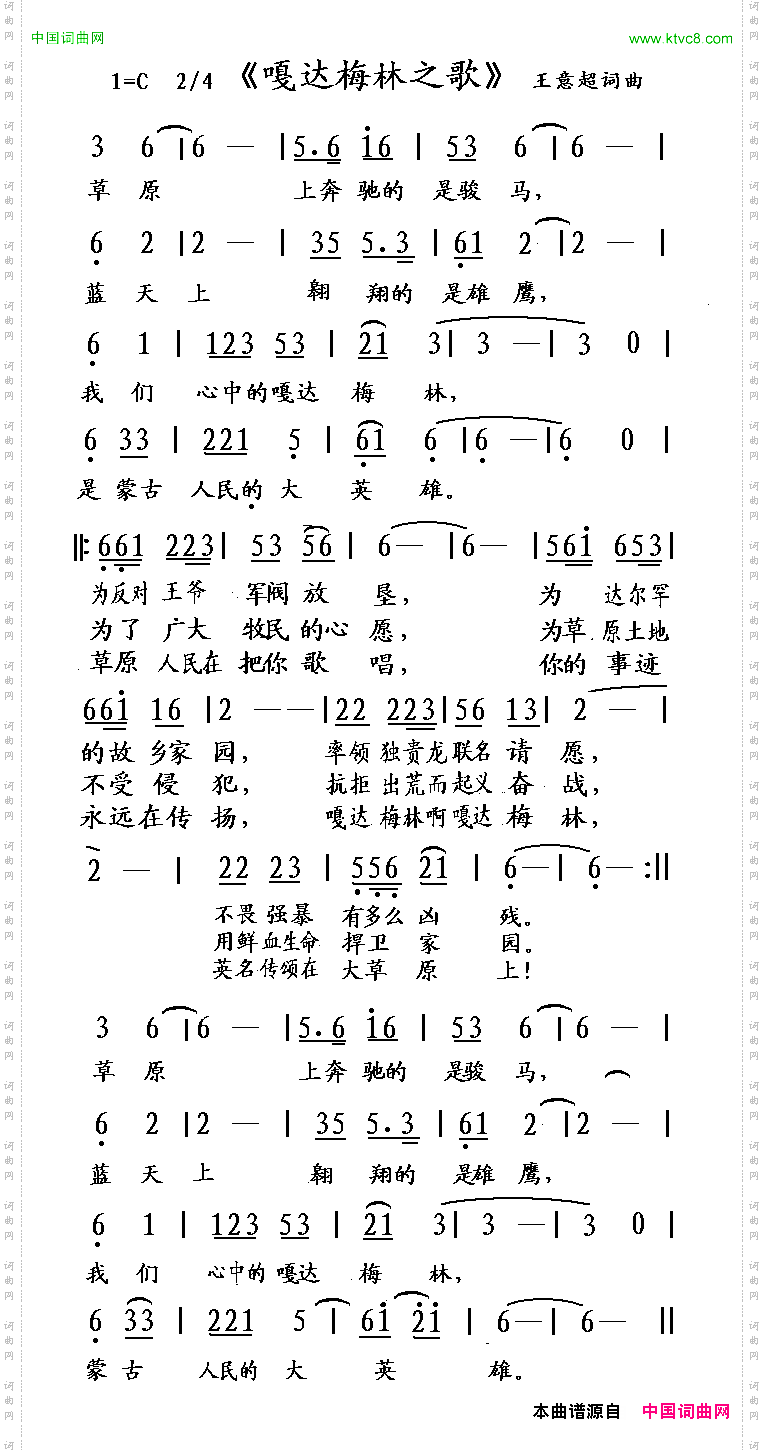 中国词曲网 www.ktvc8.com
1=C 2/4 《嘎达梅林之歌》 王意超词曲
3 6 | 6 — | 5. 6 i 6 | 5 3 6 | 6 — |
草原 上奔 驰的 是骏 马，
6 2 | 2 — | 3 5 5. 3 | 6 1 2 | 2 — |
蓝 天 上 翱 翔的 是雄 鹰，
6 1 | 1 2 3 5 3 | 2 1 3 | 3 — | 3 0 |
我 们 心中的嘎达 梅 林，
6 3 3 | 2 2 1 5 | 6 1 6 | 6 — | 6 0 |
是 蒙古 人民的 大 英 雄。
‖: 6 6 1 2 2 3 | 5 3 5 6 | 6 — | 6 — | 5 6 i 6 5 3 |
为反对 王爷 军阀 放 垦， 为 达尔罕
为了 广大 牧民 的心 愿， 为草 原土地
草原 人民在 把你 歌 唱， 你的 事迹
6 6 i 1 6 | 2 — — | 2 2 2 2 3 | 5 6 1 3 | 2 — |
的故 乡家 园， 率领 独贵龙 联名 请 愿，
不受 侵 犯， 抗拒 出荒而起义 奋 战，
永远在传 扬， 嘎达 梅林啊嘎达 梅 林，
2 — | 2 2 2 3 | 5 5 6 2 1 | 6 — | 6 — :‖
不畏 强暴 有多么 凶 残。
用鲜血生命 捍卫 家 园。
英名传颂在 大草 原 上！
3 6 | 6 — | 5. 6 i 6 | 5 3 6 | 6 — |
草 原 上奔 驰的 是骏 马，
6 2 | 2 — | 3 5 5. 3 | 6 1 2 | 2 — |
蓝 天 上 翱 翔的 是雄 鹰，
6 1 | 1 2 3 5 3 | 2 1 3 | 3 — | 3 0 |
我 们 心中的 嘎达 梅 林，
6 3 3 | 2 2 1 5 | 6 i 2 i | 6 — | 6 — ‖
蒙 古 人民的 大 英 雄。
本曲谱源自 中国词曲网